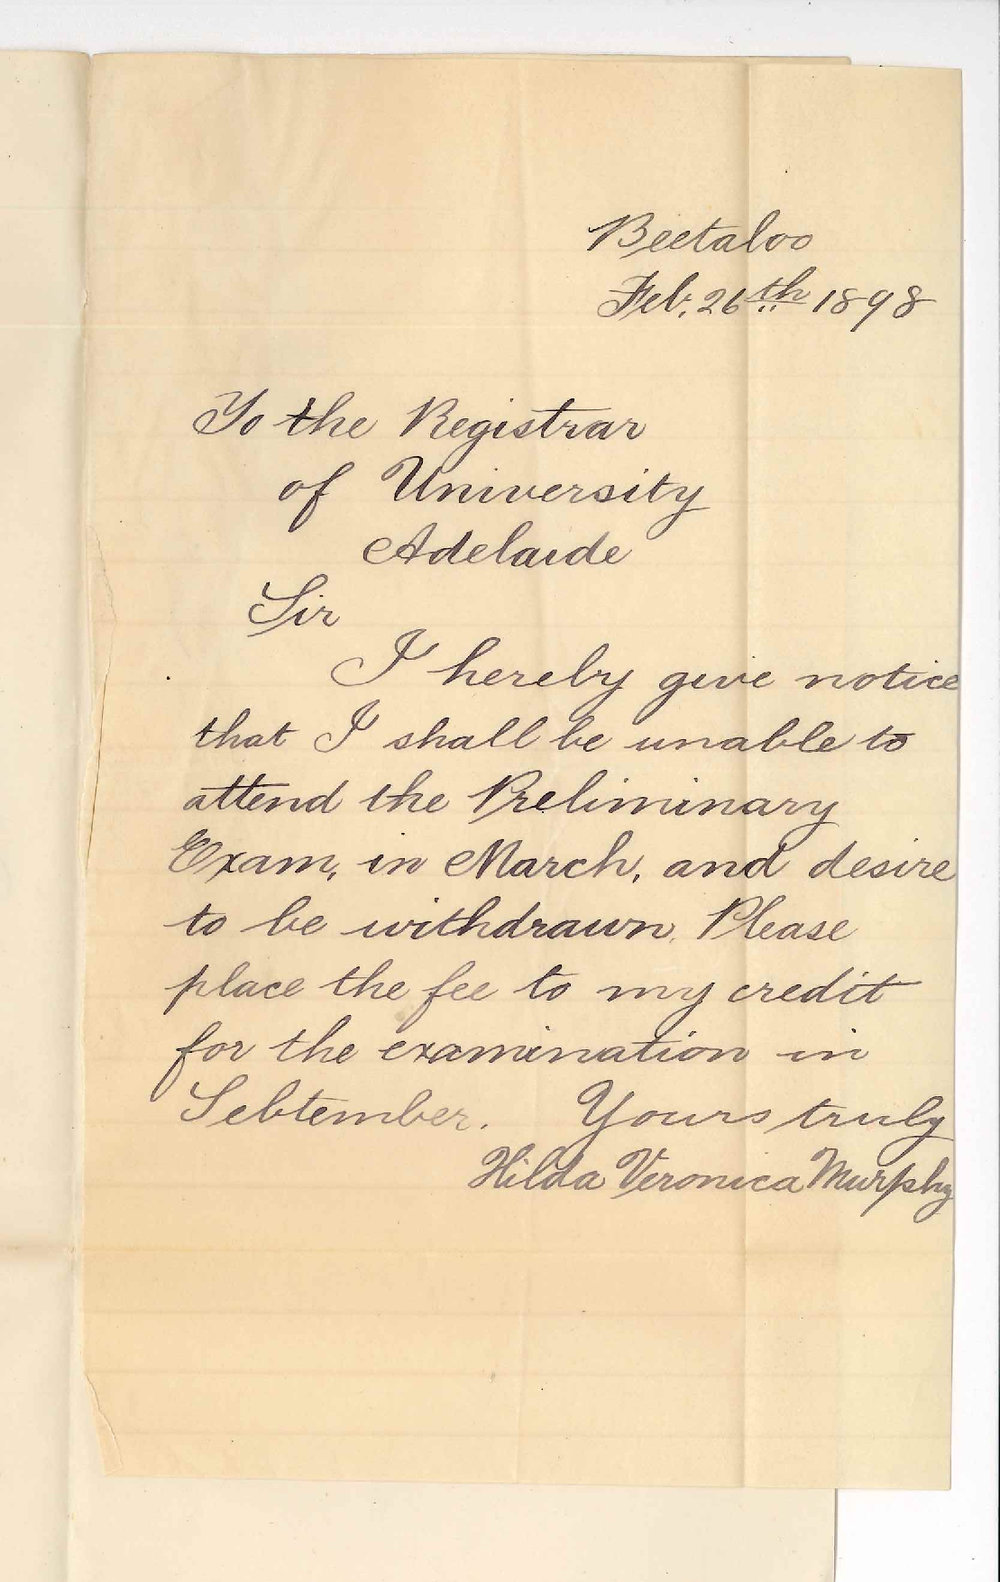 Beetaloo
Feb. 26th 1898
To the Registrar
of University
Adelaide
Sir
I hereby give notice
that I shall be unable to
attend the Preliminary
Exam, in March, and desire
to be withdrawn. Please
place the fee to my credit
for the examination in
September. Yours truly
Hilda Veronica Murphy